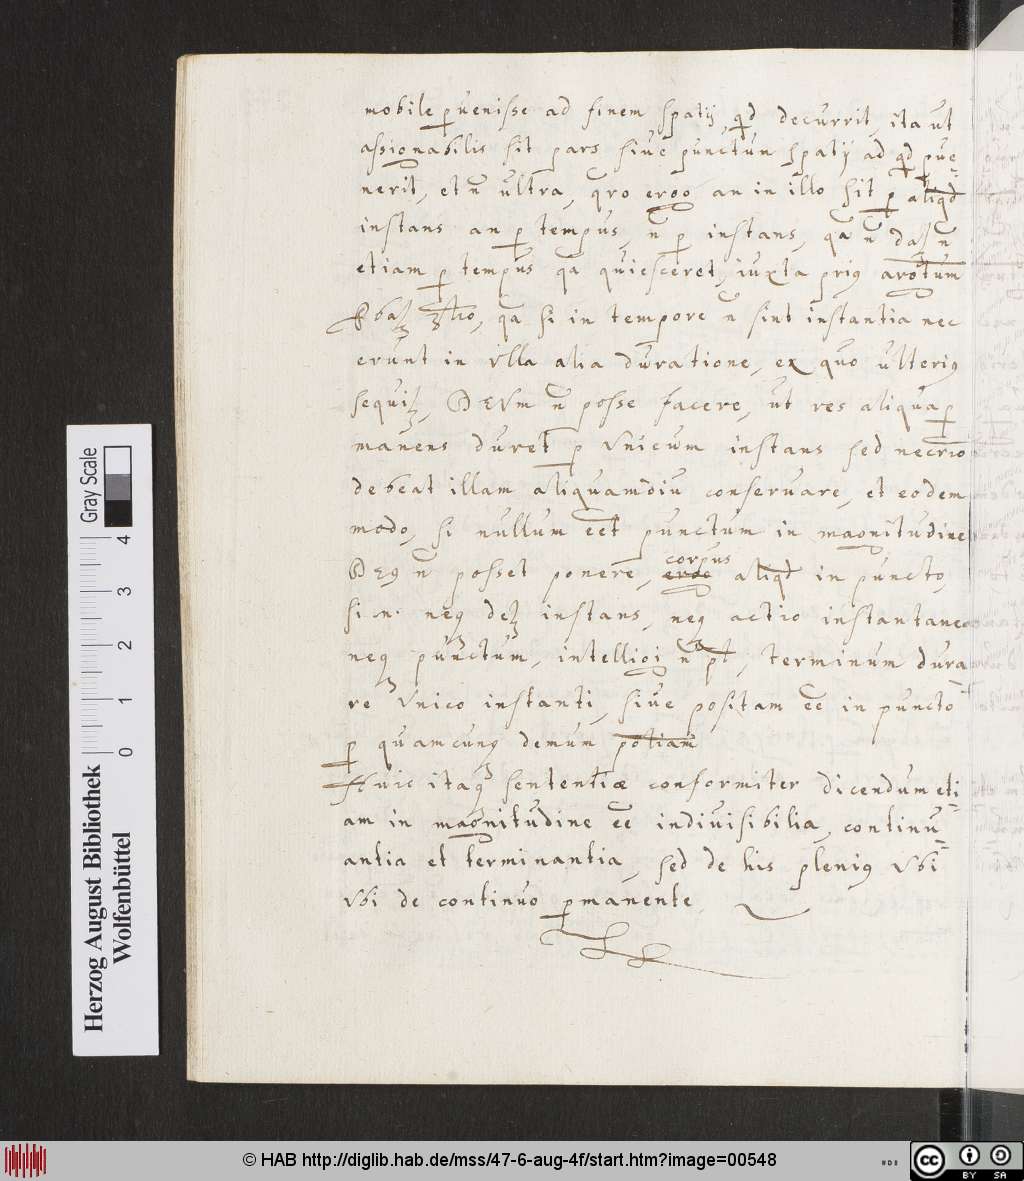 mobile pᷣuenisse ad finem spatij, qd decurrit, ita ut
assionabilis sit pars siue punctum spatij ad qd pue-
nerit, et ñ ultra, qro ergo an in illo sit p aliqd
instans an p tempus, ñ p instans, qa ñ
etiam p tempus qa quiesceret, iuxta prig
qa si in tempore ñ sint instantia nec
erunt in vlla alia duratione, ex quo ulterig
DEVm ñ posse facere, ut res aliqua p
manens duret p vnicum instans sed necrio
debeat illam aliquamdiu conseruare, et eodem
modo, si nullum eet punctum in magnitudine
DEg ñ posset ponere, corpus aliqd in puncto,
si n. neq instans, neq actio instantanea
neq punctum, intelligi ñ pt, terminum dura
re vnico instanti, siue positam ee in puncto
p quamcunq demum potiam
Huic itaq sententiæ conformiter dicendum eti-
am in magnitudine ee indiuisibilia, continu-
antia et terminantia, sed de his plenig vbi
vbi de continuo pmanente.
Gray Scale
0 1 2 3 4
Herzog August Bibliothek
Wolfenbüttel
© HAB http://diglib.hab.de/mss/47-6-aug-4f/start.htm?image=00548
cc BY SA